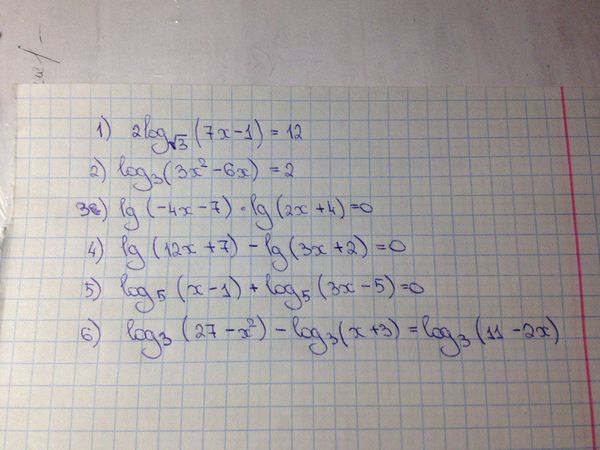 1) 2log√3 (7x-1) = 12
2) log₃(3x²-6x) = 2
3) lg (-4x-7) · lg (2x+4)=0
4) lg (12x+7) - lg (3x+2)=0
5) log₅ (x-1) + log₅ (3x-5)=0
6) log₃ (27-x²) - log₃ (x+3) = log₃ (11-2x)